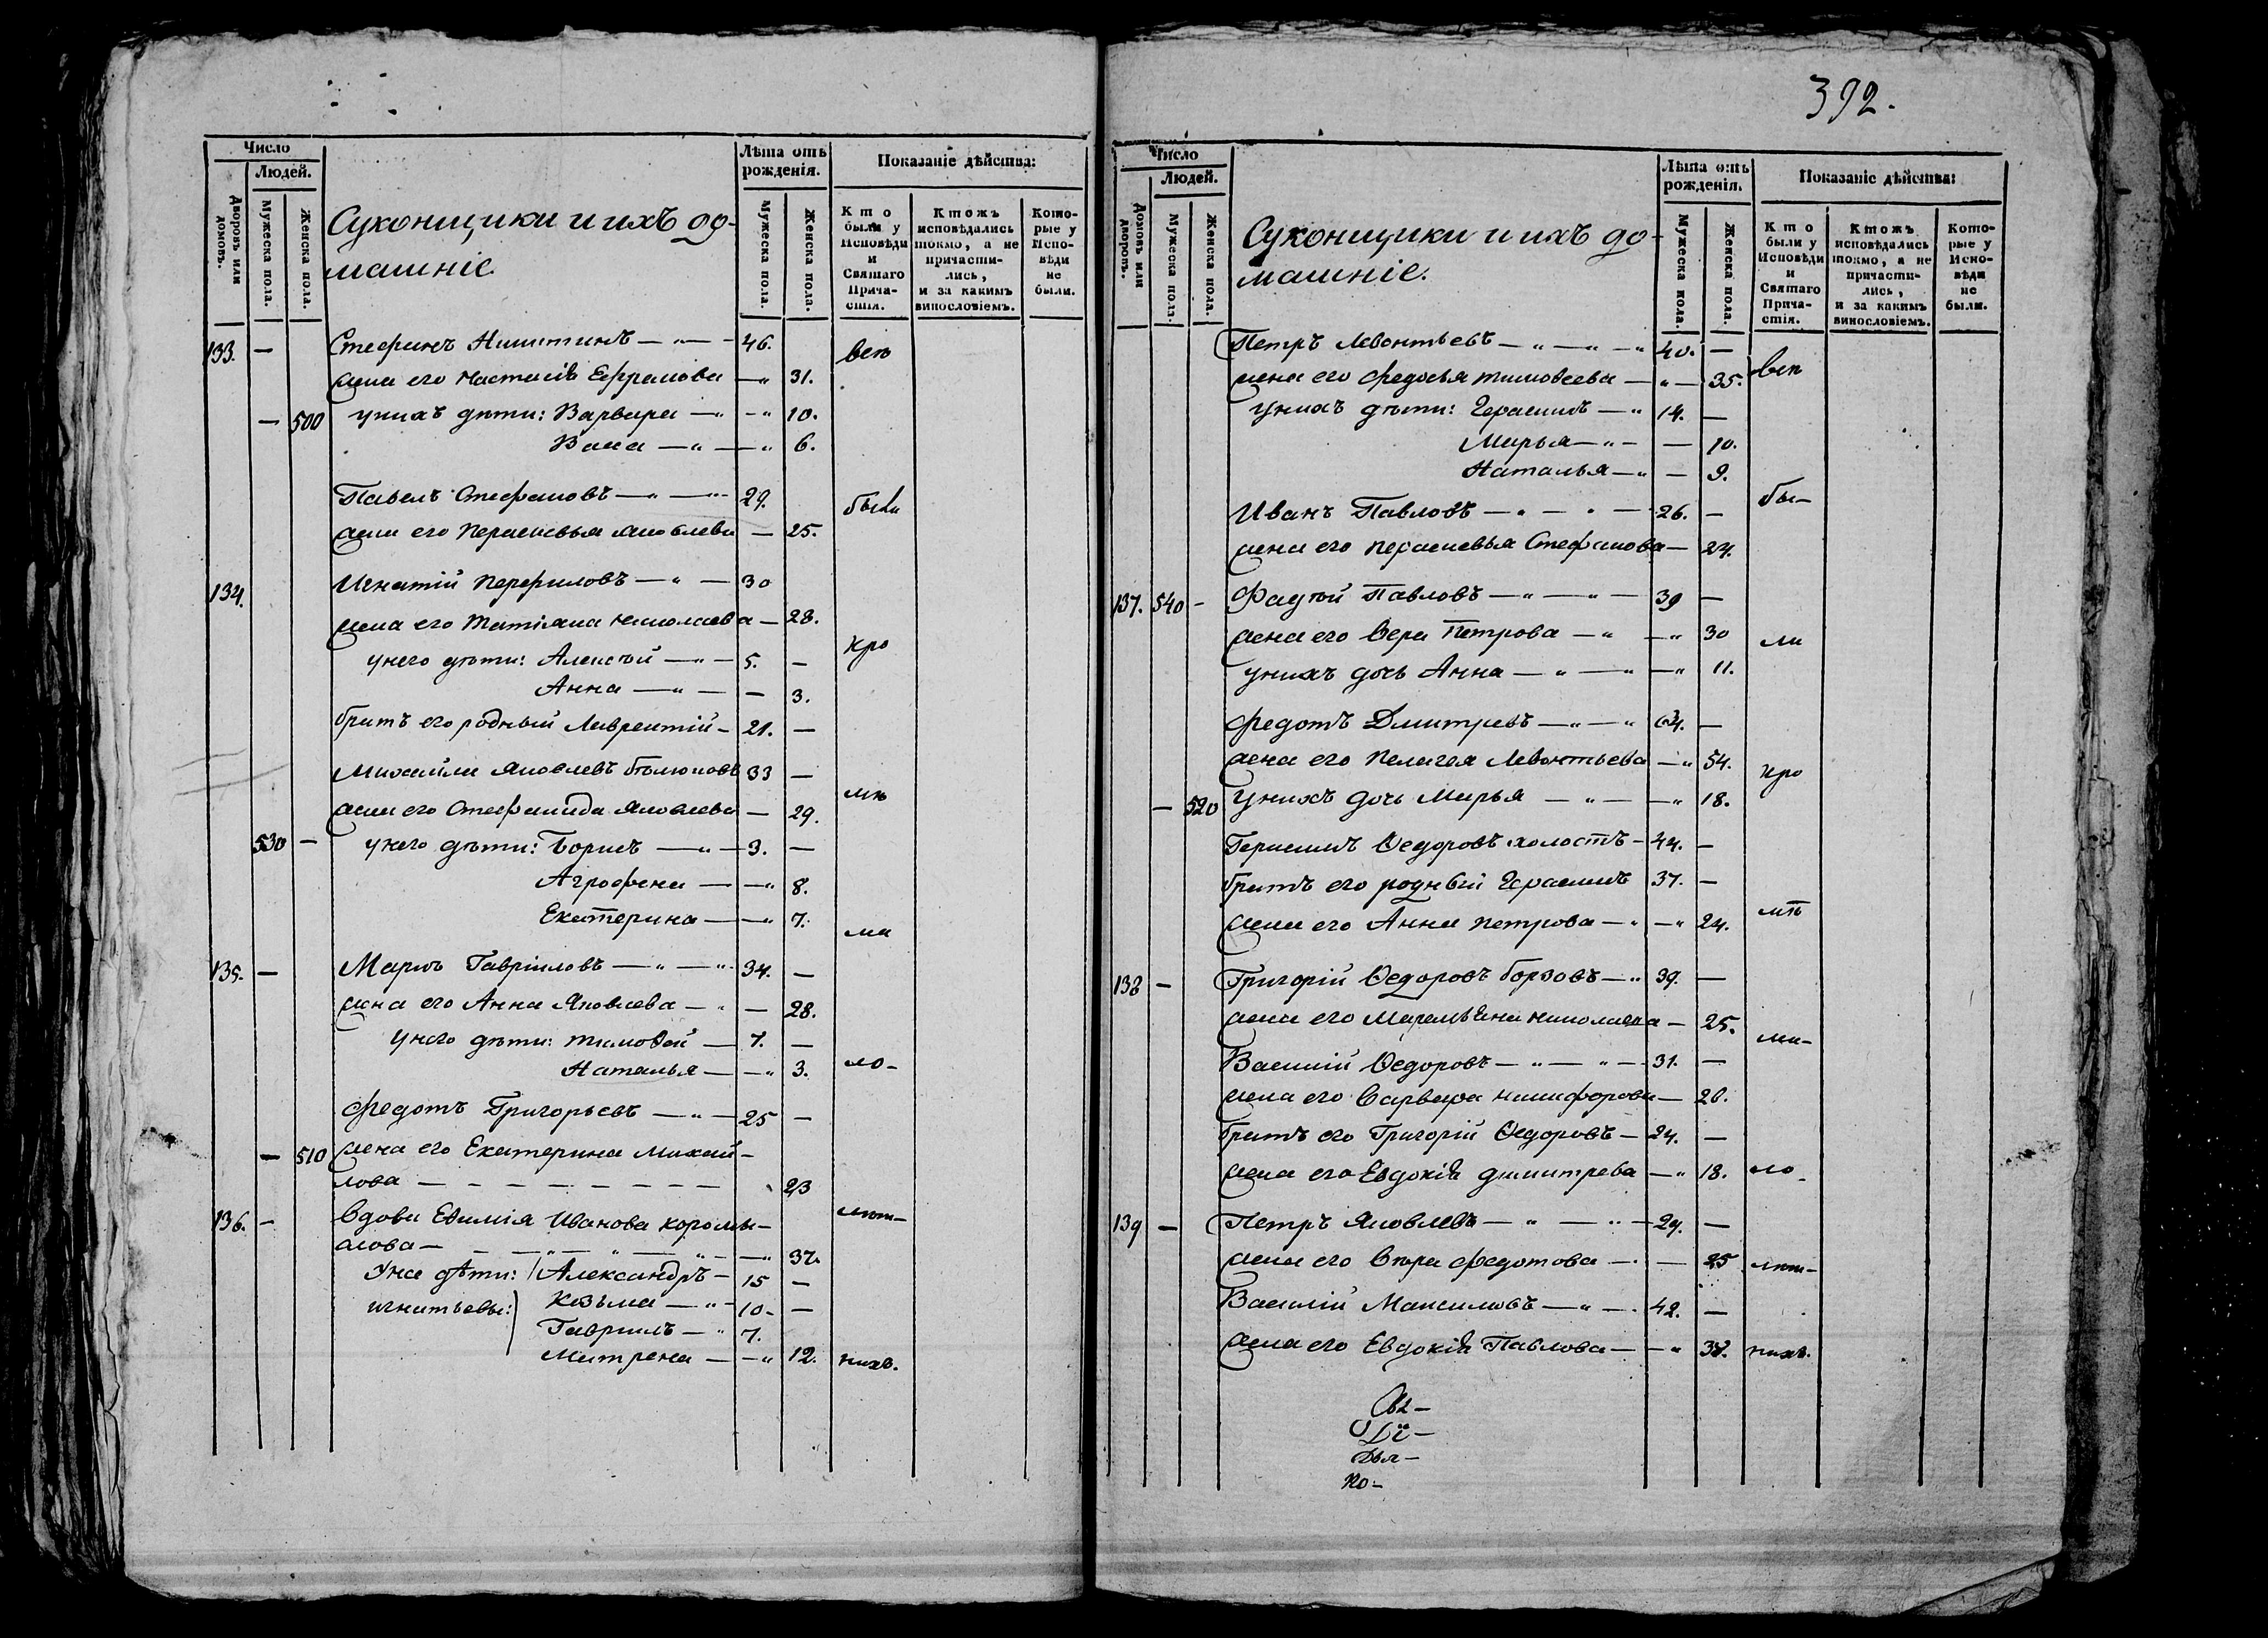 Число
Людей.
Дворовъ или домовъ.
Мужеска пола.
Женска пола.
Суконщики и ихъ до-
машніе.
Лѣта отъ рожденія.
Мужеска пола.
Женска пола.
Показаніе дѣйства:
Кто были у Исповѣди и Святаго Прича-стія.
Ктожъ исповѣдались токмо, а не причасти-лись, и за какимъ винословіемъ.
Кото-рые у Испо-вѣди не были.
133. — Стефанъ Никитинъ — " — 46. всѣ
жена его Настасія Ефрамова — " 31.
— 500 унихъ дѣти: Варвара — " — " 10.
Васа — " — " 6.
Павелъ Стефановъ — " — " 29. были
жена его Перасковья Яковлева — 25.
134. Игнатій Перфиловъ — " — 30
жена его Татіяна Николаева — 28.
унего дѣти: Алексѣй — " — 5. — кро
Анна — " — — 3.
братъ его родный Лаврентій — 21. —
Михайла Яковлевъ 33 —
жена его Стефанида Яковлева — 29. мѣ
530 — унего дѣти: Борисъ — " — 3. —
Агрофена — — " 8.
Екатерина — — " 7.
ма
135. — Маркъ Гавріиловъ — " — " 34. —
жена его Анна Яковлева — " — 28.
Унего дѣти: Тимофей — 7. —
Наталья — — " 3. ло-
Федотъ Григорьевъ — " — 25 —
— 510 жена его Екатерина Михай-
лова — — — — — — — 23
136. — Вдова Евѳимія Иванова лѣт-
— " — " — " — " 37.
Унее дѣти: Александръ — 15 —
игнатьевы: Козьма — " — 10. —
Гаврилъ — " 7.
Матрена — — " 12. нихъ.
392.
Число
Людей.
Домовъ или дворовъ.
Мужеска пола.
Женска пола.
Суконщики и ихъ до-
машніе.
Лѣта отъ рожденія.
Мужеска пола.
Женска пола.
Показаніе дѣйства:
Кто были у Исповѣди и Святаго Прича-стія.
Ктожъ исповѣдались токмо, а не причасти-лись, и за какимъ винословіемъ.
Кото-рые у Испо-вѣди не были.
Петръ Левонтьевъ — " — " — " 40. — всѣ
жена его Федосья Тимофеева — " — 35.
Унихъ дѣти: Герасимъ — " 14. —
Марья — " — — 10.
Наталья — " — 9.
Иванъ Павловъ — " — " — 26. — бы-
жена его Перасковья Стефанова — 24.
137. 540 — Фадѣй Павловъ — " — " — 39 —
жена его Вера Петрова — " — " 30 ли
унихъ дочь Анна — " — " — " 11.
Федотъ Дмитревъ — " — " 64. —
жена его Пелагея Левонтьева — " 54. кро
— 520 Унихъ дочь Марья — " — — " 18.
Герасимъ Ѳедоровъ холостъ — 44. —
братъ его родный Герасимъ 37. —
жена его Анна Петрова — " — " 24. мѣ
138 — Григорій Ѳедоровъ Борзовъ — " 39. —
жена его Маремьяна Николаева — 25. ма-
Василій Ѳедоровъ — " — " — 31. —
жена его Варвара Никифорова — 26.
братъ его Григорій Ѳедоровъ — 24. —
жена его Евдокія Димитрева — " 18. ло-
139 — Петръ Яковлевъ — " — " — 29. —
жена его Вѣра Федотова — " — 25 лѣт-
Василій Максимовъ — " — 42. —
жена его Евдокія Павлова — — " 38. нихъ.
Дья-
ко-